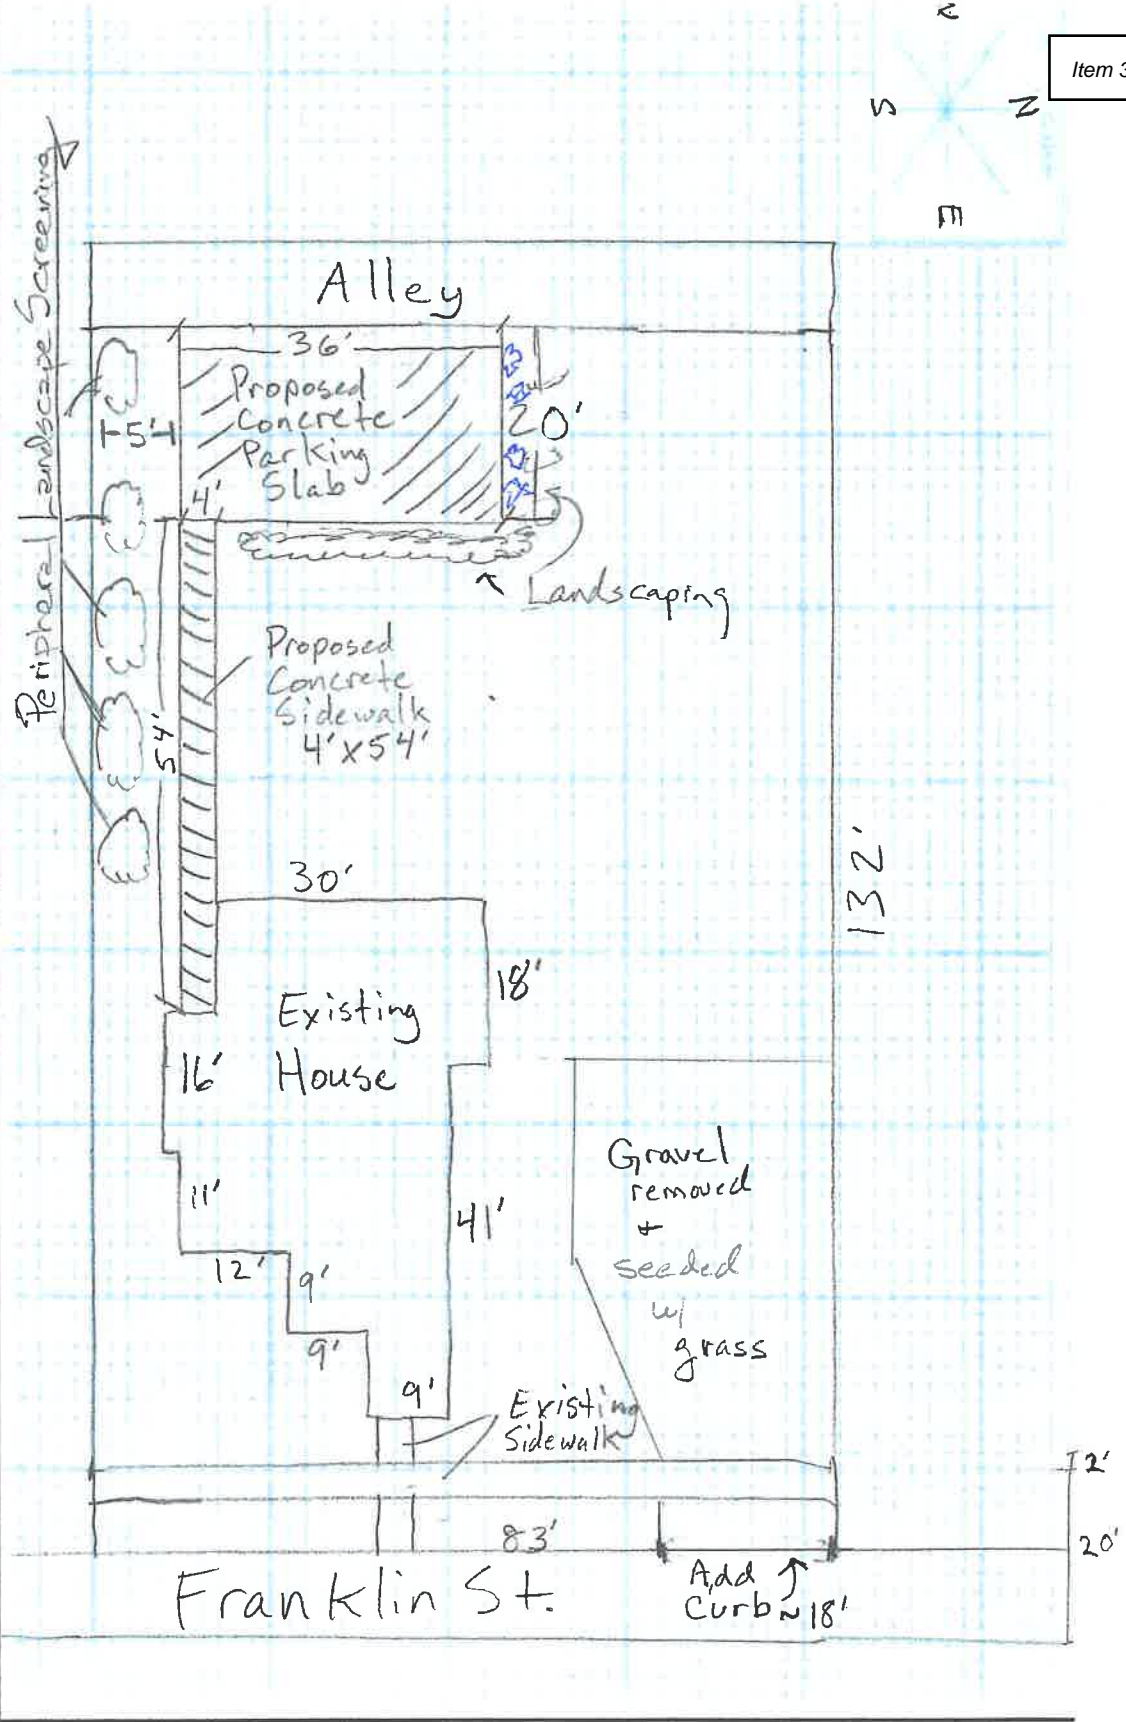 Item 3
S
N
E
Alley
Peripheral Landscape Screening
36'
Proposed
Concrete
Parking
Slab
20'
5'
4'
Landscaping
Proposed
Concrete
Sidewalk
4'x54'
54'
30'
18'
132'
Existing
House
16'
11'
41'
12'
9'
9'
9'
Gravel
removed
+
seeded
w/
grass
Existing
Sidewalk
2'
83'
20'
Franklin St.
Add
Curb ~ 18'